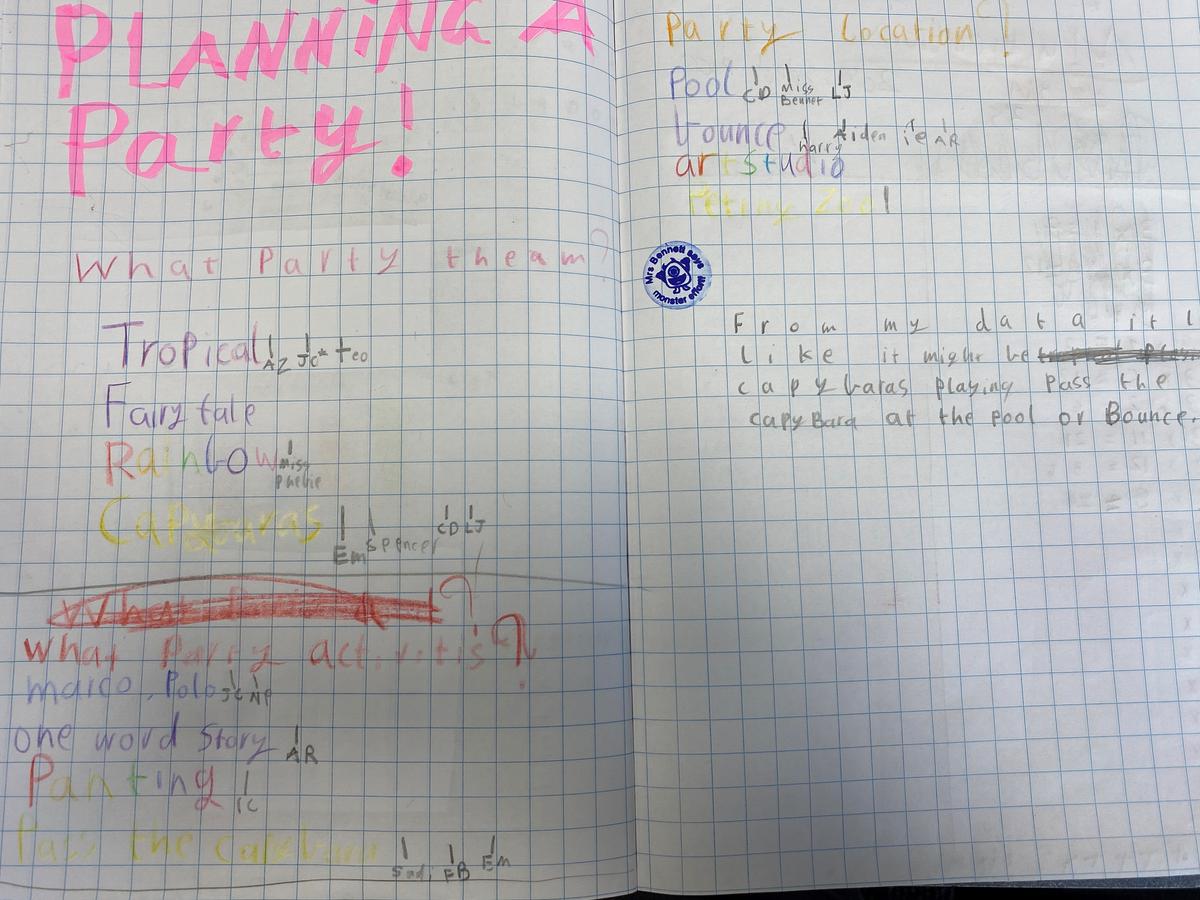 PLANNING A
Party!
What Party theam?
Tropical AZ Jc Teo
Fairy tale
Rainbow Miss
Capybaras Em Spencer CD LJ
What Party activitis?
marco Polo JC
one word Story AR
Panting IC
Pass the EB Em
Party Location?
Pool CD Miss Bennet LJ
bounce harry Aiden AR
art studio
Petiny Zoo
Mrs Bennett says
monster effort!
From my data it l
like it might be
capybaras playing Pass the
capyBara at the pool or Bounce.